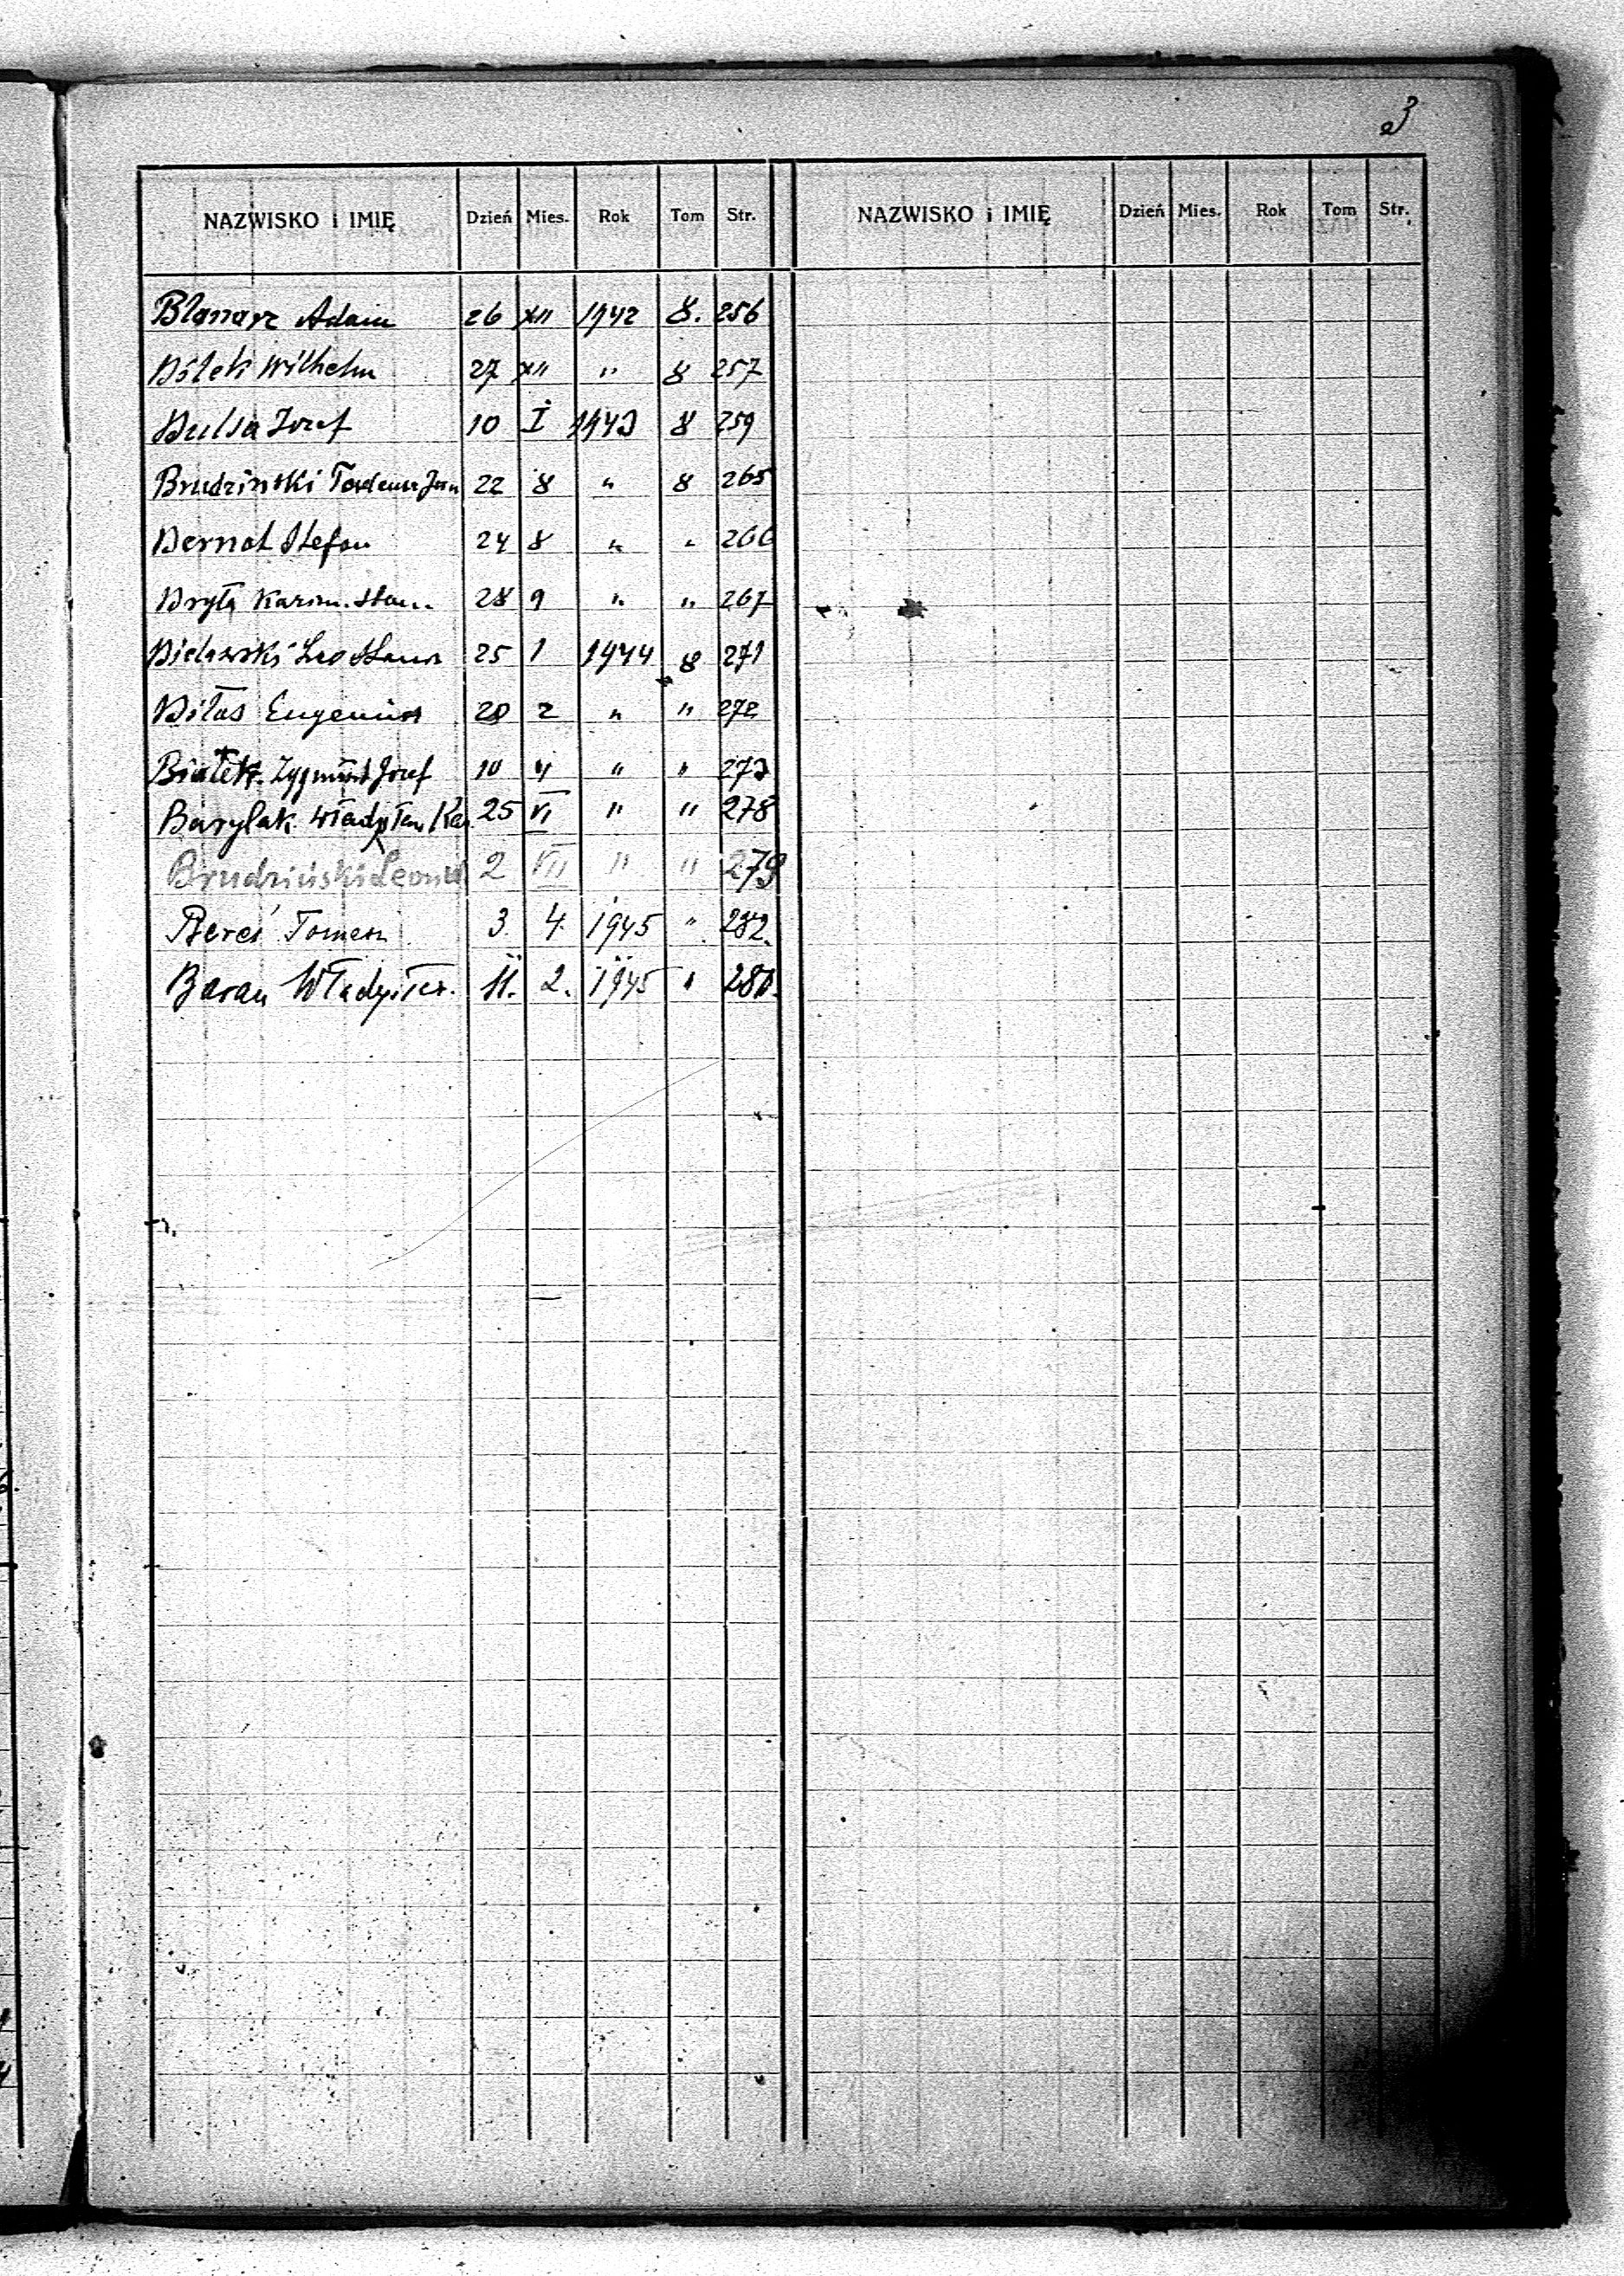 3
NAZWISKO i IMIĘ Dzień Mies. Rok Tom Str. NAZWISKO i IMIĘ Dzień Mies. Rok Tom Str.
Blanarz Adam 26 XII 1942 8. 256
Bólek Wilhelm 27 XII " 8 257
Bulsa Józef 10 I 1943 8 259
Brudziński Tadeusz Jan 22 8 " 8 265
Bernat Stefan 24 8 " " 266
Bryła Kazim. Stan. 28 9 " " 267
Bielawski Leo 25 1 1944 8 271
Biłas Eugeniusz 28 2 " " 272
Białek Zygmunt Józef 10 4 " " 273
Barylak Władysław Kaz. 25 VI " " 278
Brudziński Leonid 2 VII " " 279
Bereś Tomasz 3. 4. 1945 " 282.
Baran Władysław. 11. 2. 1945 " 280.